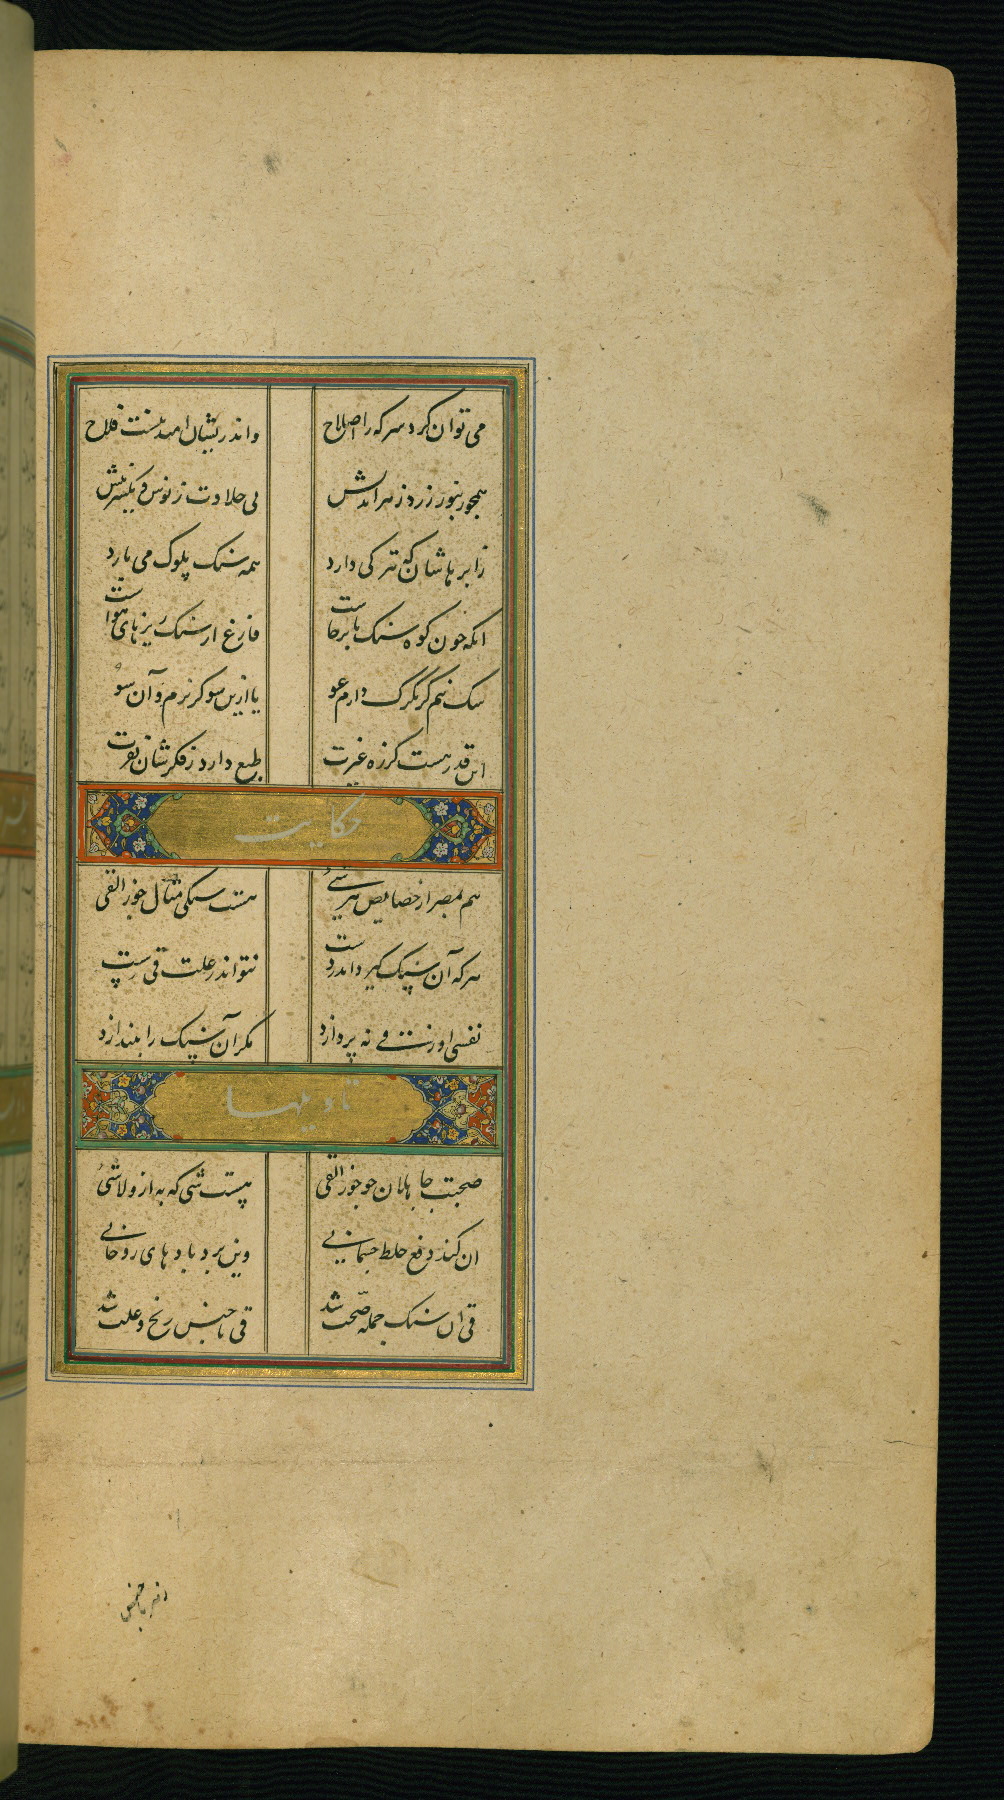 می توان کرد سرکه را اصلاح واندریشان امید نیست فلاح
همچو زنبور زرد زهر اندیش بی حلاوت ز نوش و یکسر نیش
زابر هاشان که تیرکی دارد همه سنک پلوک می بارد
انکه چون کوه سنک پا برجاست فارغ از سنک ریزهای هواست
سک نیم کر بکرک دارم عو یا ازین سو کریزم و آن سو
این قدر هست کز ره غیرت طبع دارد ز فکرشان نفرت
حکایت
هم بمصر از خصایص هر شیء هست سنکی مثال حجر القی
هر که آن سنک کیرد اندر دست نتواند ز علت قی رست
نفسی او ز قی نه پردازد مکر آن سنک را بیندازد
تاویلها
صحبت جاهلان چو حجر القی نیست شی که به از و لاشی
ان کند دفع خلط جسمانی وین برد بادهای روحانی
قی ان سنک جمله صحت شد قی ناجنس رنج و علت شد